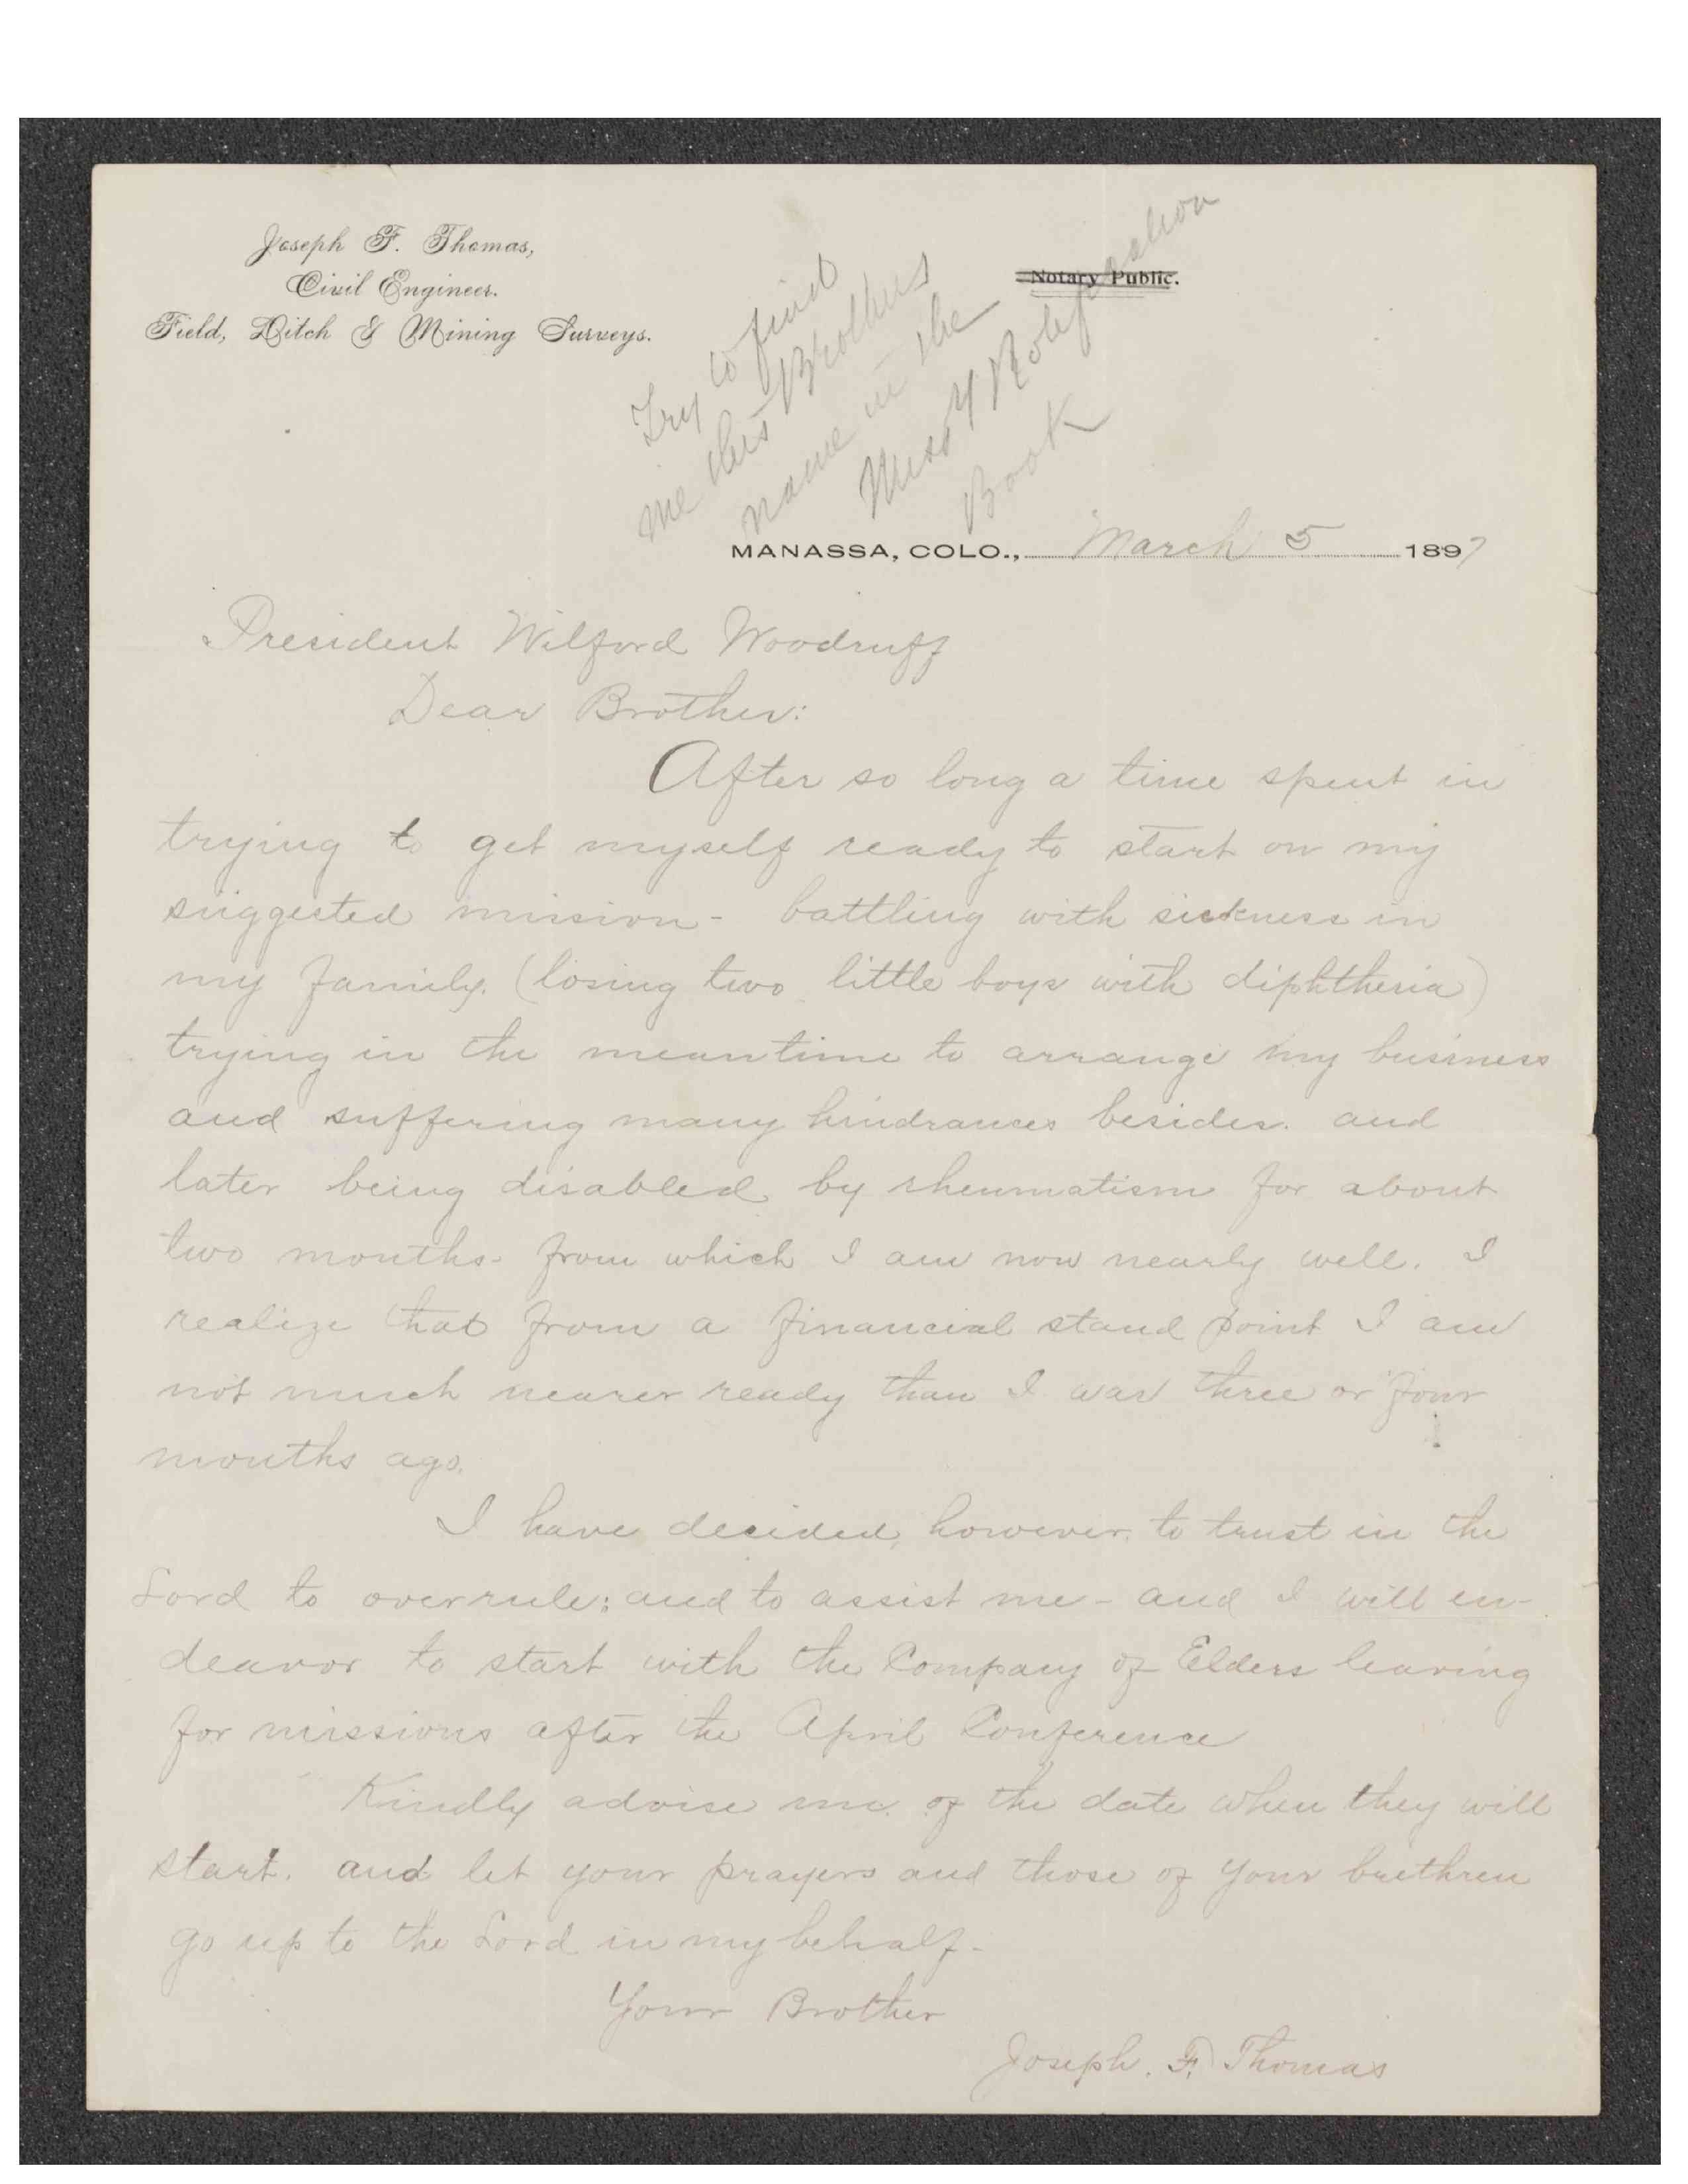 Joseph F. Thomas,
Civil Engineer.
Field, Ditch & Mining Surveys.
Notary Public.
Try to find
me this Brothers
name in the
Missy
Book
MANASSA, COLO., March 5 1897
President Wilford Woodruff
Dear Brother:
After so long a time spent in
trying to get myself ready to start on my
suggested mission - battling with sickness in
my family. (losing two little boys with diphtheria)
trying in the meantime to arrange my business
and suffering many hindrances besides. and
later being disabled by rheumatism for about
two months - from which I am now nearly well. I
realize that from a financial stand point I am
not much nearer ready than I was three or four
months ago.
I have decided, however, to trust in the
Lord to overrule; and to assist me - and I will en-
deavor to start with the Company of Elders leaving
for missions after the April Conference
Kindly advise me of the date when they will
start. and let your prayers and those of your brethren
go up to the Lord in my behalf -
Your Brother
Joseph. F. Thomas